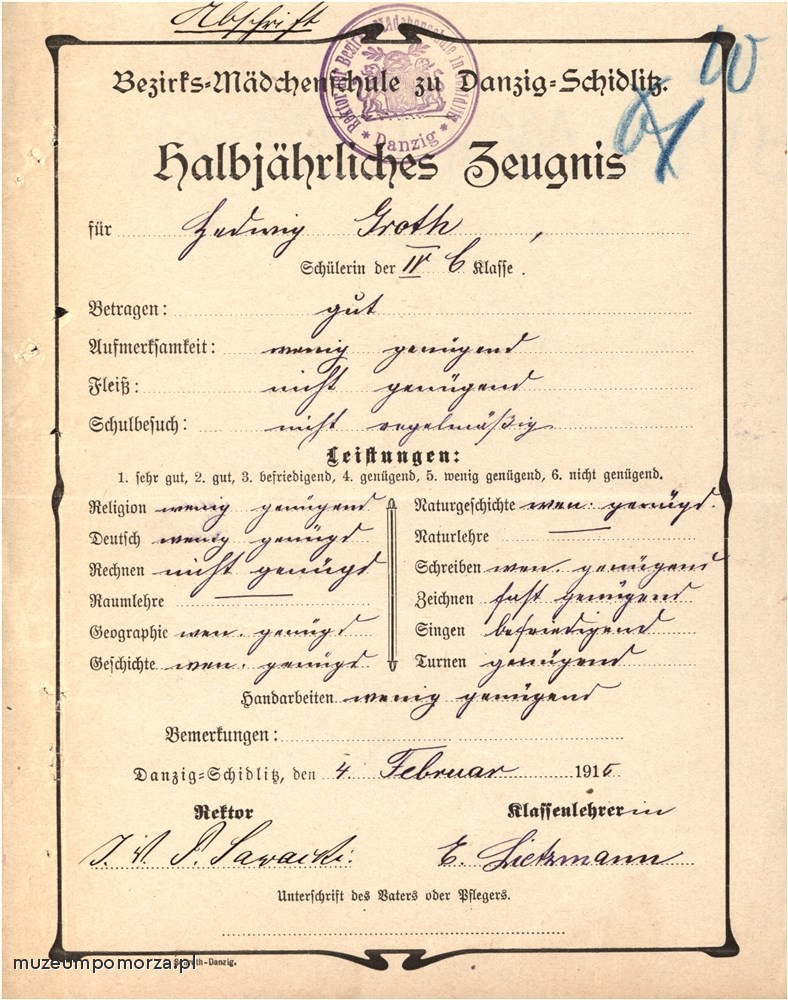 Abschrift
Bezirks-Mädchenschule zu Danzig-Schidlitz.
Danzig
Halbjährliches Zeugnis
für Hedwig Groth,
Schülerin der IV C Klasse.
Betragen: gut
Aufmerksamkeit: wenig genügend
Fleiß: nicht genügend
Schulbesuch: nicht regelmäßig
Leistungen:
1. sehr gut, 2. gut, 3. befriedigend, 4. genügend, 5. wenig genügend, 6. nicht genügend.
Religion wenig genügend
Deutsch wenig genügd
Rechnen nicht genügd
Raumlehre —
Geographie wen. genügd
Geschichte wen. genügd
Naturgeschichte wen. genügd.
Naturlehre —
Schreiben wen. genügend
Zeichnen fast genügend
Singen befriedigend
Turnen genügend
Handarbeiten wenig genügend
Bemerkungen:
Danzig-Schidlitz, den 4. Februar 1915
Rektor Klassenlehrerin
J. V. P. Sawacki. E. Lietzmann
Unterschrift des Vaters oder Pflegers.
-Danzig.
muzeumpomorza.pl